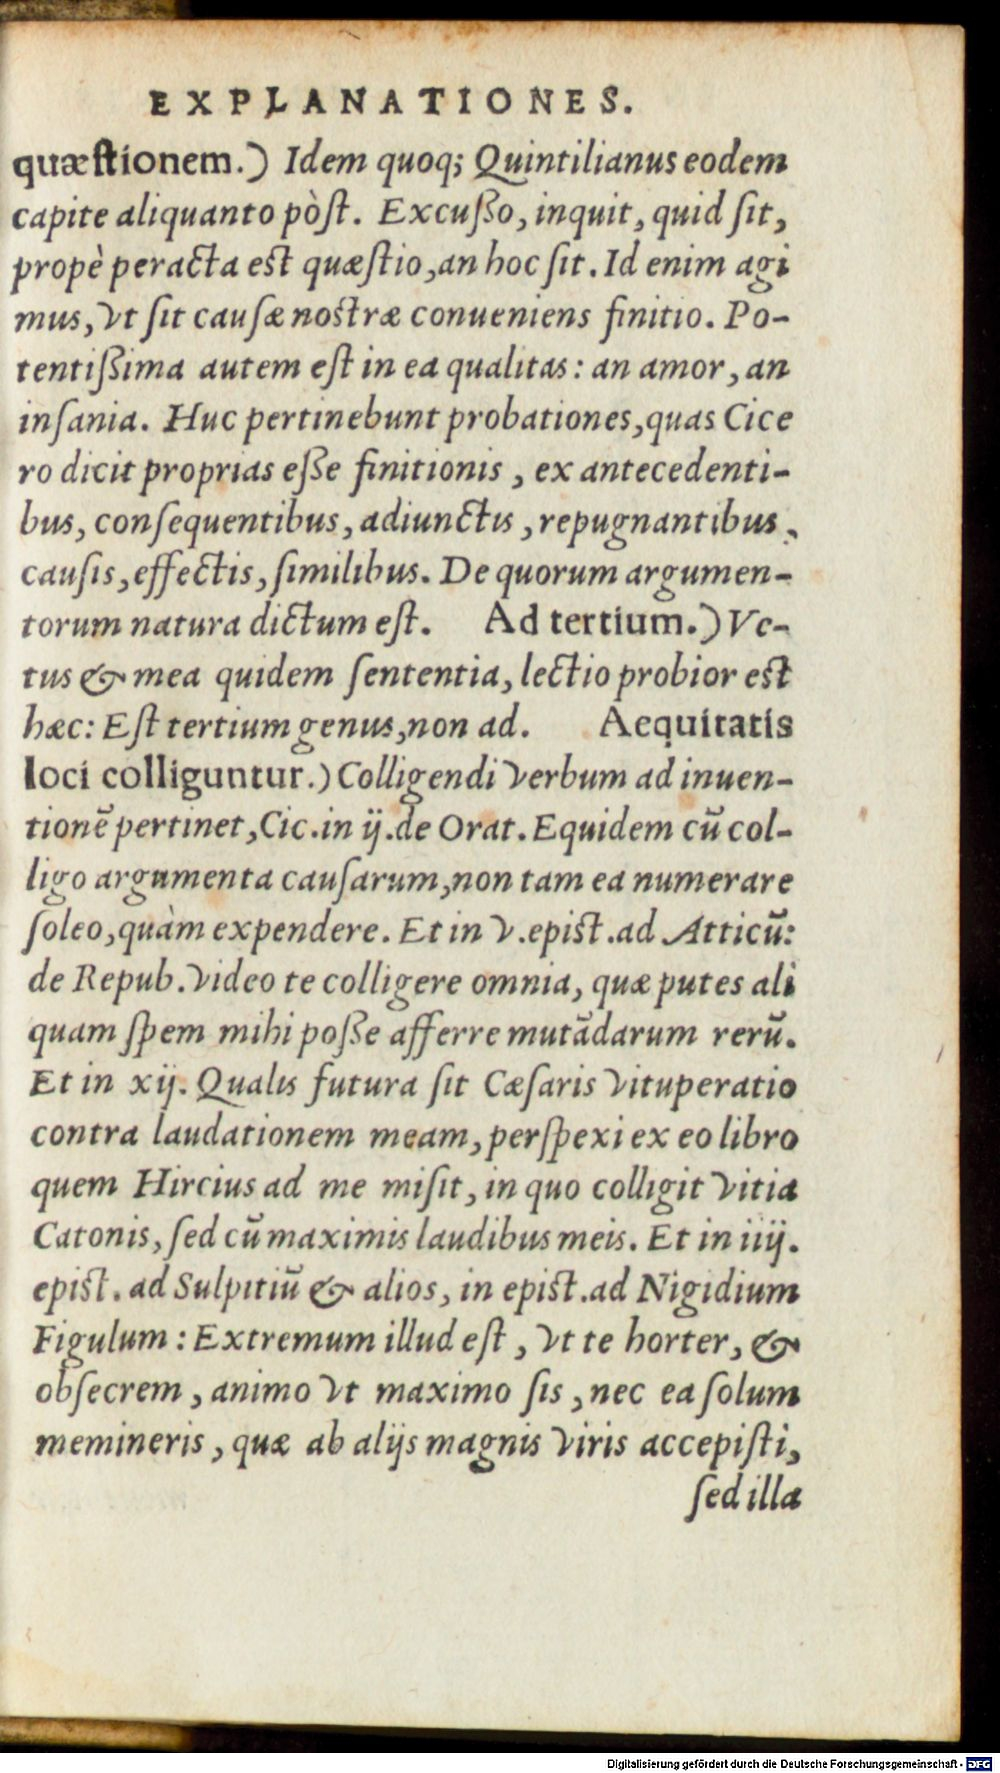 EXPLANATIONES.
quæſtionem.) Idem quoq; Quintilianus eodem
capite aliquanto pòſt. Excuſſo, inquit, quid ſit,
propè peracta est quæſtio, an hoc ſit. Id enim agi
mus, vt ſit cauſæ nostræ conueniens finitio. Po-
tentiſſima autem eſt in ea qualitas: an amor, an
inſania. Huc pertinebunt probationes, quas Cice
ro dicit proprias eſſe finitionis, ex antecedenti-
bus, conſequentibus, adiunctis, repugnantibus,
cauſis, effectis, ſimilibus. De quorum argumen-
torum natura dictum eſt. Ad tertium.) Ve-
tus & mea quidem ſententia, lectio probior est
hæc: Eſt tertium genus, non ad. Aequitatis
loci colliguntur.) Colligendi verbum ad inuen-
tionẽ pertinet, Cic. in ij. de Orat. Equidem cũ col-
ligo argumenta cauſarum, non tam ea numerare
ſoleo, quàm expendere. Et in v. epist. ad Atticũ:
de Repub. video te colligere omnia, quæ putes ali
quam ſpem mihi poſſe afferre mutãdarum rerũ.
Et in xij. Qualis futura ſit Cæſaris vituperatio
contra laudationem meam, perſpexi ex eo libro
quem Hircius ad me miſit, in quo colligit vitia
Catonis, ſed cũ maximis laudibus meis. Et in iiij.
epist. ad Sulpitiũ & alios, in epist. ad Nigidium
Figulum: Extremum illud eſt, vt te horter, &
obſecrem, animo vt maximo ſis, nec ea ſolum
memineris, quæ ab alijs magnis viris accepiſti,
ſed illa
Digitalisierung gefördert durch die Deutsche Forschungsgemeinschaft - DFG